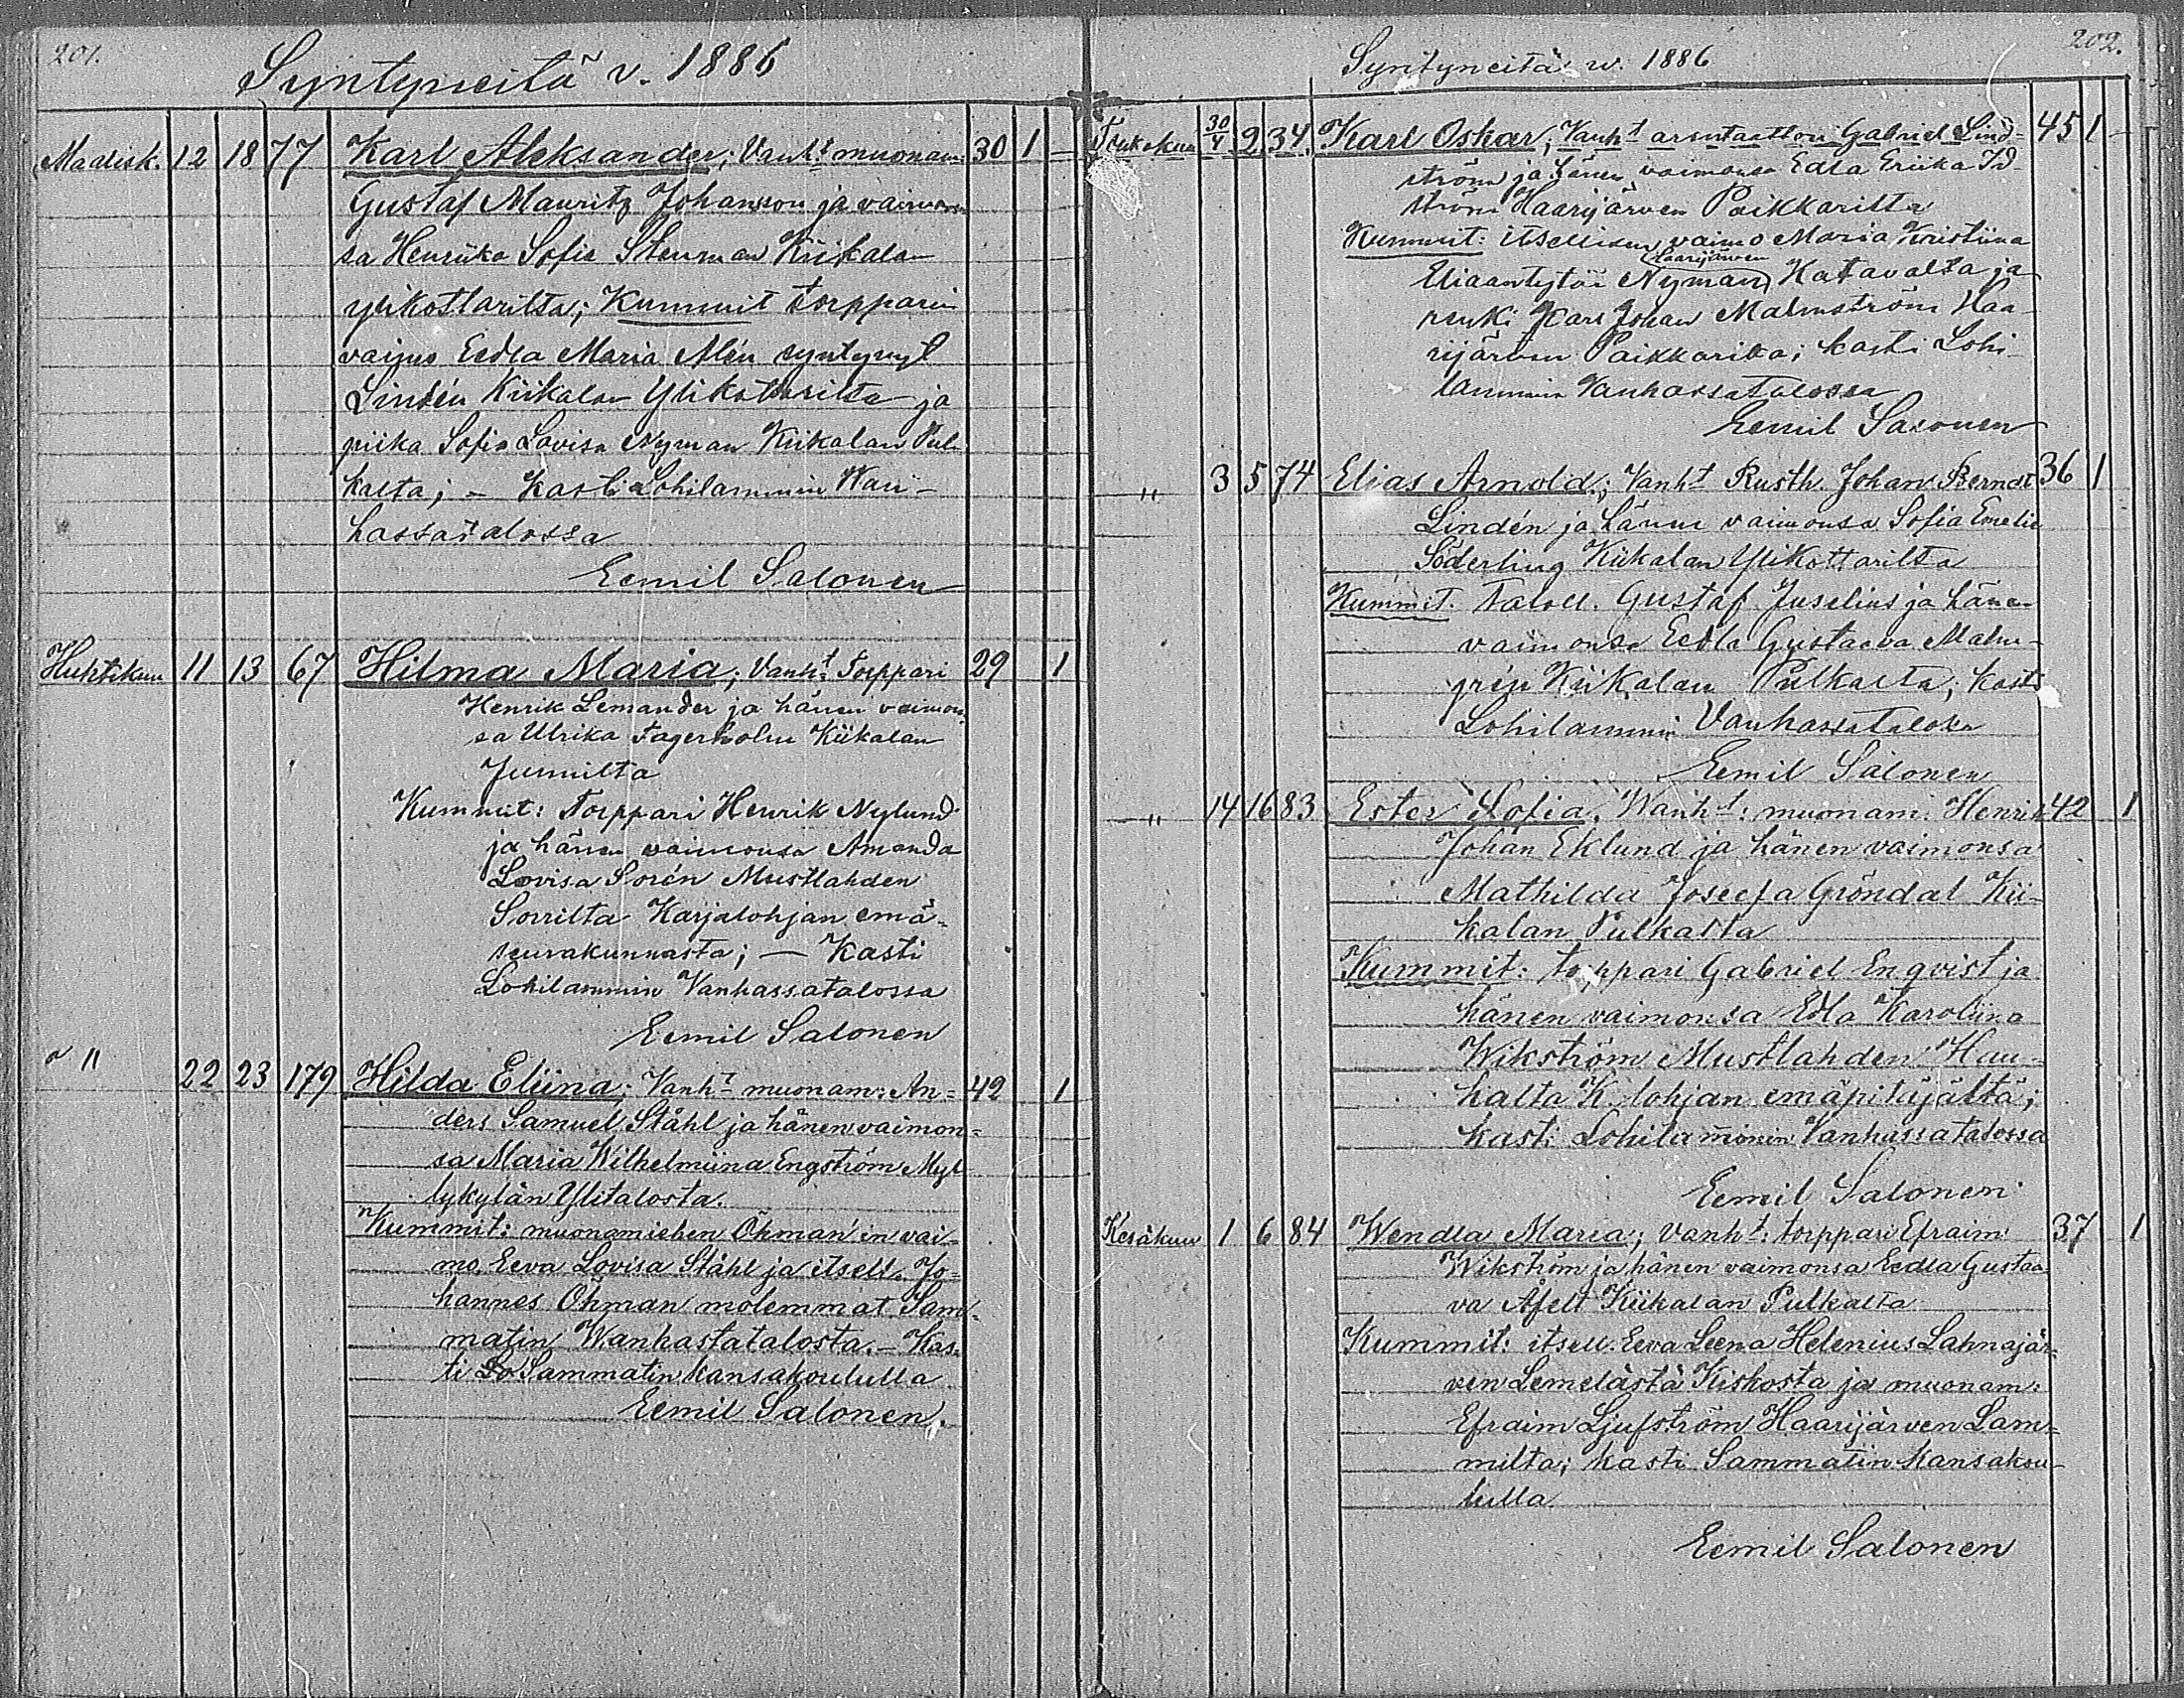 201.
Syntyneitä v. 1886
Maalisk. 12 18 77 Karl Aleksander; Vanht. muonam. 30 1 –
Gustaf Mauritz Johansson ja vaimon
sa Henriika Sofia Stenman Kiikalan
ylikottarilta; Kummit torpparin
vaimo Eedla Maria Alén syntynyt
Lindén Kiikalan Ylikottarilta ja
piika Sofia Lovisa Nyman Kiikalan Pul
kalta; – Kasti Lohilammin Wan-
hassatalossa
Eemil Salonen
Huhtikuu 11 13 67 Hilma Maria; Vanht. Torppari 29 1
Henrik Lemander ja hänen vaimon
sa Ulrika Fagerholm Kiikalan
Junnilta
Kummit: Torppari Henrik Nylund
ja hänen vaimonsa Amanda
Lovisa Sorén Mustlahden
Sorrilta Karjalohjan emä-
seurakunnasta; – Kasti
Lohilammin Vanhassatalossa
Eemil Salonen
" 22 23 179 Hilda Eliina; Vanht muonam: An= 42 1
ders Samuel Ståhl ja hänen vaimon=
sa Maria Wilhelmiina Engström Myl
lykylän Ylitalosta.
Kummit: muonamiehen Öhman'in vai=
mo Eeva Lovisa Ståhl ja itsell. Jo=
hannes Öhman molemmat Sam=
matin Wanhastatalosta. – Kas=
ti Lo Sammatin kansakoululla
Eemil Salonen.
202.
Syntyneitä w. 1886
Toukokuu 30/4 2 34 Karl Oskar; Vanht arentaattori Gabriel Lind= 45 1 –
ström ja hänen vaimonsa Edla Eriika Id
ström Haarijärven Paikkarilta
Kummit: itsellisen vaimo Maria Kristiina
Haarijärven
Eliaantytär Nyman Katavalta ja
renki Karl Johan Malmström Haa-
rijärven Paikkarilta; kasti Lohi-
lammin Vanhassatalossa
Eemil Salonen
" 3 5 74 Elias Arnold; Vanht Rusth. Johan Berndt 36 1
Lindén ja hänen vaimonsa Sofia Emelie
Söderling Kiikalan Ylikottarilta
Kummit. Taloll. Gustaf Juselius ja hänen
vaimonsa Eedla Gustaava Malm-
grén Kiikalan Pulkalta; kasti
Lohilammin Vanhassatalossa
Eemil Salonen
" 14 16 83 Ester Sofia. Wanht: muonam: Henrik 42 1
Johan Eklund ja hänen vaimonsa
Mathilda Josefa Gröndal Kii-
kalan Pulkalta
Kummit: torppari Gabriel Enqvist ja
hänen vaimonsa Edla Karoliina
Wikström Mustlahden Hau-
kalta K. lohjan emäpitäjältä;
kasti Lohilammin Vanhassatalossa
Eemil Salonen
Kesäkuu 1 6 84 Wendla Maria; Vanht: torppari Efraim 37 1
Wikström ja hänen vaimonsa Eedla Gustaa-
va Afelt Kiikalan Pulkalta
Kummit: itsell. Eeva Leena Helenius Lahnajär=
ven Lemelästä Kiskosta ja muonam:
Efraim Ljufström Haarijärven Lam=
milta; kasti Sammatin kansakou-
lulla
Eemil Salonen